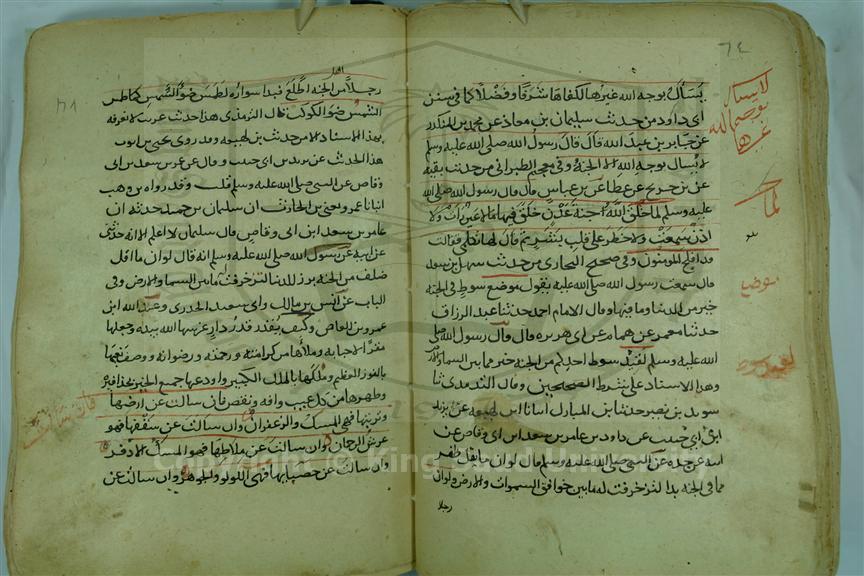 ٦٤
يسأل بوجه الله غيرها لكفاها شرفا وفضلا كما في سنن
ابي داود من حديث سليمان بن معاذ عن محمد بن المنكدر
عن جابر بن عبد الله قال قال رسول الله صلى الله عليه وسلم
لا يسال بوجه الله الا الجنة وفي معجم الطبراني من حديث بقية
عن بن جريج عن عطا عن بن عباس قال قال رسول الله صلى الله
عليه وسلم لما خلق الله جنة عدن خلق فيها ما لا عين رات ولا
اذن سمعت ولا خطر على قلب بشر ثم قال لها تكلمي فقالت
قد افلح المومنون وفي صحيح البخاري من حديث سهل بن سعد
قال سمعت رسول الله صلى الله عليه يقول موضع سوط في الجنة
خير من الدنيا وما فيها وقال الامام احمد حدثنا عبد الرزاق
حدثنا معمر عن همام عن ابي هريره قال قال رسول الله صلى
الله عليه وسلم لقيد سوط احدكم من الجنة خير مما بين السما والارض
وهذا الاسناد على شرط الصحيحين وقال الترمذي ثنا
سويد بن نصر حدثنا بن المبارك انبانا ابن لهيعه عن يزيد
ابن ابي حبيب عن داود بن عامر بن سعد ابن ابي وقاص عن
ابيه عن جده عن النبي صلى الله عليه وسلم قال لوان ما يقل ظفر
مما في الجنة بدا لتزخرفت له ما بين خوافق السموات والارض ولوان
رجلا
لا يسال
بوجه الله
غيرها
لما
موضع
لقيد سوط
اهل
رجلا من الجنة اطلع فبدا سواره لطمس ضو الشمس كما تطمس
الشمس ضو الكوكب قال الترمذي هذا حديث غريب لا نعرفه
بهذا الاسناد الا من حديث بن لهيعه وقد روى يحيى بن ايوب
هذا الحديث عن يزيد بن ابي حبيب وقال عن عمر بن سعد بن ابي
وقاص عن النبي صلى الله عليه وسلم قلت وقد رواه بن وهب
انبانا عمرو يعني بن الحارث ان سليمان بن حميد حدثه ان
عامر بن سعد ابن ابي وقاص قال سليمان لا اعلم الا انه حدثني
عن ابيه عن رسول الله صلى الله عليه وسلم انه قال لوان ما اقل
ظفر من الجنة برز للدنيا لتزخرفت ما بين السما والارض وفي
الباب عن انس بن مالك وابي سعيد الخدري وعبد الله ابن
عمرو بن العاص وكيف يقدر قدر دار غرسها الله بيده وجعلها
مقرا لاحبابه وملاها من كرامته ورحمته ورضوانه ووصف نعيمها
بالفوز العظيم وملكها بالملك الكبير واودعها جميع الخير بحذافيره
وطهرها من كل عيب وافه ونقص فان سالت عن ارضها
وتربتها فهي المسك والزعفران وان سالت عن سقفها فهو
عرش الرحمان وان سالت عن ملاطها فهو المسك الاذفر
وان سالت عن حصبايها فهي اللولو والجوهر وان سالت عن
فان سالت
Copyright © King Saud University